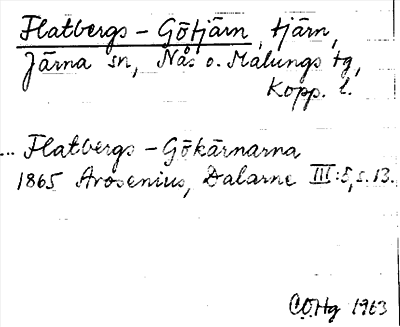 Flatbergs - Götjärn, tjärn,
Järna sn, Nås o. Malungs tg,
Kopp. l.
... Flatbergs - Gökärnarna
1865 Arosenius, Dalarne III:5, s. 13.
C.O.Hg 1963